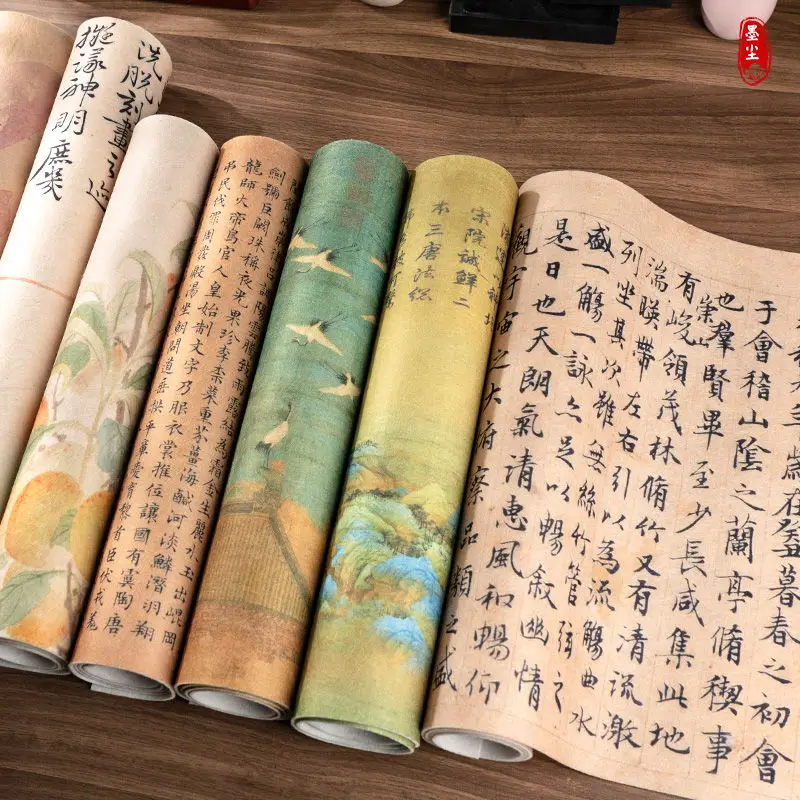 墨尘
歲在癸丑暮春之初會
于會稽山陰之蘭亭脩稧事
也群賢畢至少長咸集此地
有崇山峻領茂林脩竹又有清流激
湍暎帶左右引以為流觴曲水
列坐其次雖無絲竹管弦之
盛一觴一詠亦足以暢敘幽情
是日也天朗氣清惠風和暢仰
觀宇宙之大府察品類之盛
宋院誠鮮二
本三唐法縱
騰致雨露結為霜金生麗水玉出崐岡
劍號巨闕珠稱夜光果珍李柰菜重芥薑海鹹河淡鱗潛羽翔
龍師火帝鳥官人皇始制文字乃服衣裳推位讓國有虞陶唐
弔民伐罪周發殷湯坐朝問道垂拱平章愛育黎首臣伏戎羌
洗脫刻畫之迹
擬議神明庶幾